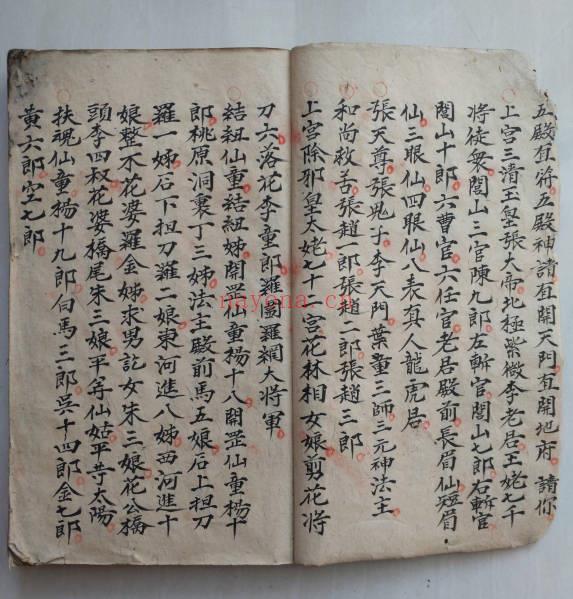 五殿直将五殿神請直開天門直開地府請你
上宮三清玉皇張大帝北極紫微李老君王姥七千
将徒衆閭山三官陳九郎左斬官閭山七郎右斬官
閭山十郎六曹官六任官老君殿前長眉仙短眉
仙三眼仙四眼仙八表真人龍虎君
張天尊張鬼子李天門葉童三師三元神法主
和尚救苦張趙一郎張趙二郎張趙三郎
上宮除邪皇太姥七十二宮花林相女娘剪花将
刀六落花李童郎羅圖羅網大将軍
結紐仙童結紐姊開罡仙童楊十八開罡仙童楊十
郎桃原洞裏丁三姊法主殿前馬五娘石上担刀
羅一姊石下担刀羅二娘東河進八姊西河進十
娘整不花婆羅金姊求男討女朱三娘花公橋
頭李四叔花婆橋尾朱三娘平等仙姑平等太陽
扶魂仙童楊十九郎白馬三郎吳十四郎金七郎
黃六郎空七郎
nayona.cn